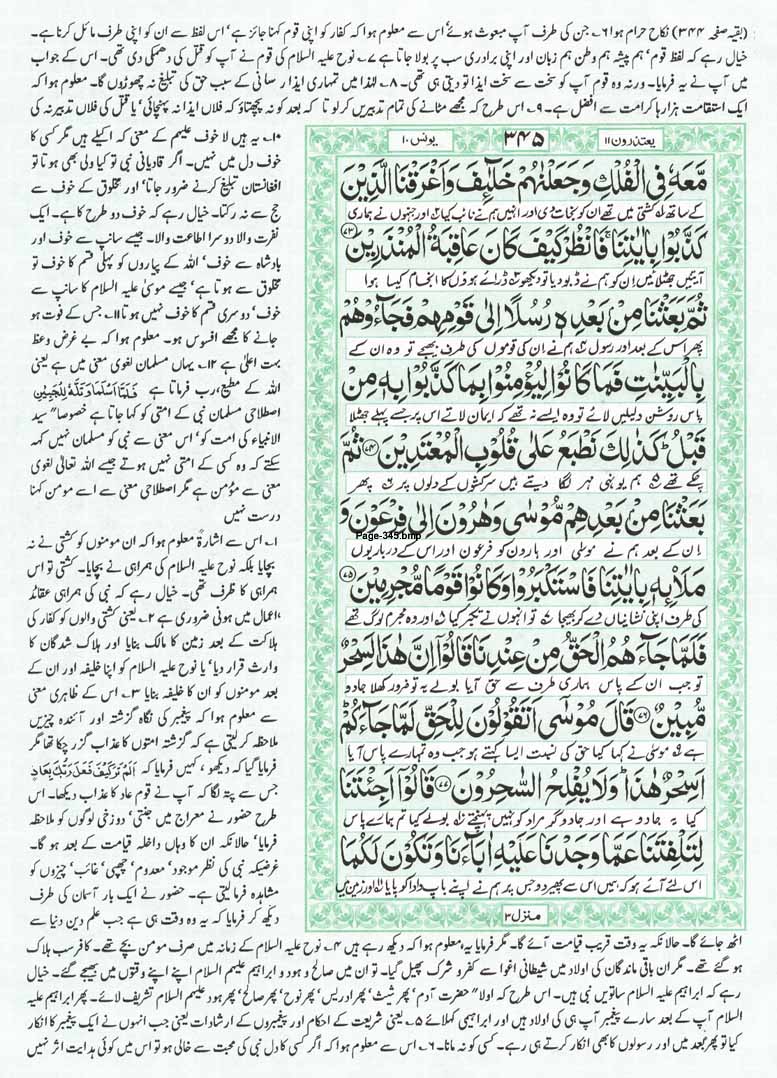 (بقیہ صفحہ ۳۴۴) نکاح حرام ہوا ۶؎ جن کی طرف آپ مبعوث ہوئے‘ اس سے معلوم ہوا کہ کفار کو اپنی قوم کہنا جائز ہے‘ اس لفظ سے ان کو اپنی طرف مائل کرنا ہے۔
خیال رہے کہ لفظ قوم‘ ہم پیشہ ہم وطن ہم زبان اور اپنی برادری سب پر بولا جاتا ہے ۷؎ نوح علیہ السلام کی قوم نے آپ کو قتل کی دھمکی دی تھی۔ اس کے جواب
میں آپ نے یہ فرمایا۔ ورنہ وہ قوم آپ کو سخت سے سخت ایذا تو دیتی ہی تھی۔ ۸؎ لہٰذا میں تمہاری ایذار سانی کے سبب حق کی تبلیغ نہ چھوڑوں گا۔ معلوم ہوا کہ
ایک استقامت ہزارہا کرامت سے افضل ہے۔ ۹؎ اس طرح کہ مجھے مٹانے کی تمام تدبیریں کر لو تا کہ بعد کو نہ پچھتاؤ کہ فلاں ایذا نہ پہنچائی‘ یا قتل کی فلاں تدبیر نہ کی
یعتذرون ۱۱
۳۴۵
یونس ۱۰
مَّعَهٗ فِی الْفُلْكِ وَجَعَلْنٰهُمْ خَلٰٓىِٕفَ وَاَغْرَقْنَا الَّذِیْنَ
کے ساتھ ۱؎ کشتی میں تھے ان کو نجات دی اور انہیں ہم نے نائب کیا ۲؎ اور جنہوں نے ہماری
كَذَّبُوْا بِاٰیٰتِنَا ۚ فَانْظُرْ كَیْفَ كَانَ عَاقِبَةُ الْمُنْذَرِیْنَ ﴿۷۳﴾
آیتیں جھٹلائیں ان کو ہم نے ڈبو دیا تو دیکھو ۳؎ ڈرائے ہوؤں کا انجام کیسا ہوا
ثُمَّ بَعَثْنَا مِنْۢ بَعْدِهٖ رُسُلًا اِلٰی قَوْمِهِمْ فَجَآءُوْهُمْ
پھر اس کے بعد اور رسول ۴؎ ہم نے ان کی قوموں کی طرف بھیجے تو وہ ان کے
بِالْبَیِّنٰتِ فَمَا كَانُوْا لِیُؤْمِنُوْا بِمَا كَذَّبُوْا بِهٖ مِنْ
پاس روشن دلیلیں لائے تو وہ ایسے نہ تھے کہ ایمان لاتے اس پر جسے پہلے جھٹلا
قَبْلُ ؕ كَذٰلِكَ نَطْبَعُ عَلٰی قُلُوْبِ الْمُعْتَدِیْنَ ﴿۷۴﴾ ثُمَّ
چکے تھے ۵؎ ہم یونہی مہر لگا دیتے ہیں سرکشوں کے دلوں پر ۶؎ پھر
بَعَثْنَا مِنْۢ بَعْدِهِمْ مُّوْسٰی وَهٰرُوْنَ اِلٰی فِرْعَوْنَ وَ
ان کے بعد ہم نے موسیٰ اور ہارون کو فرعون اور اس کے درباریوں
Page-345.bmp
مَلَا۟ىِٕهٖ بِاٰیٰتِنَا فَاسْتَكْبَرُوْا وَكَانُوْا قَوْمًا مُّجْرِمِیْنَ ﴿۷۵﴾
کی طرف اپنی نشانیاں دے کر بھیجا ۷؎ تو انہوں نے تکبر کیا ۸؎ اور وہ مجرم لوگ تھے
فَلَمَّا جَآءَهُمُ الْحَقُّ مِنْ عِنْدِنَا قَالُوْۤا اِنَّ هٰذَا لَسِحْرٌ
تو جب ان کے پاس ہماری طرف سے حق آیا بولے یہ تو ضرور کھلا جادو
مُّبِیْنٌ ﴿۷۶﴾ قَالَ مُوْسٰۤی اَتَقُوْلُوْنَ لِلْحَقِّ لَمَّا جَآءَكُمْ ؕ
ہے ۹؎ موسیٰ نے کہا کیا حق کی نسبت ایسا کہتے ہو جب وہ تمہارے پاس آیا
اَسِحْرٌ هٰذَا ؕ وَلَا یُفْلِحُ السّٰحِرُوْنَ ﴿۷۷﴾ قَالُوْۤا اَجِئْتَنَا
کیا یہ جادو ہے اور جادوگر مراد کو نہیں پہنچتے ۱۰؎ بولے کیا تم ہمارے پاس
لِتَلْفِتَنَا عَمَّا وَجَدْنَا عَلَیْهِ اٰبَآءَنَا وَتَكُوْنَ لَكُمَا
اس لئے آئے ہو کہ ہمیں اس سے پھیر دو جس پر ہم نے اپنے باپ دادا کو پایا ۱۱؎ اور زمین میں
منزل ۳
۱۰؎ یہ ہیں لا خوف علیہم کے معنی کہ اکیلے ہیں مگر کسی کا
خوف دل میں نہیں۔ اگر قادیانی نبی تو کیا ولی بھی ہوتا تو
افغانستان تبلیغ کرنے ضرور جاتا‘ اور مخلوق کے خوف سے
حج سے نہ رکتا۔ خیال رہے کہ خوف دو طرح کا ہے۔ ایک
نفرت والا دوسرا اطاعت والا۔ جیسے سانپ سے خوف اور
بادشاہ سے خوف‘ اللہ کے پیاروں کو پہلی قسم کا خوف تو
مخلوق سے ہوتا ہے‘ جیسے موسیٰ علیہ السلام کا سانپ سے
خوف‘ دوسری قسم کا خوف نہیں ہوتا ۱۱؎ جس کے فوت ہو
جانے کا مجھے افسوس ہو۔ معلوم ہوا کہ بے غرض وعظ
بہت اعلیٰ ہے ۱۲؎ یہاں مسلمان لغوی معنی میں ہے یعنی
اللہ کے مطیع‘ رب فرماتا ہے فَلَمَّآ اَسْلَمَا وَتَلَّهٗ لِلْجَبِیْنِ
اصطلاحی مسلمان نبی کے امتی کو کہا جاتا ہے خصوصاً" سید
الانبیاء کی امت کو‘ اس معنی سے نبی کو مسلمان نہیں کہہ
سکتے کہ وہ کسی کے امتی نہیں ہوتے جیسے اللہ تعالیٰ لغوی
معنی سے مؤمن ہے مگر اصطلاحی معنی سے اسے مومن کہنا
درست نہیں
۱؎ اس سے اشارۃً معلوم ہوا کہ ان مومنوں کو کشتی نے نہ
بچایا بلکہ نوح علیہ السلام کی ہمراہی نے بچایا۔ کشتی تو اس
ہمراہی کا ظرف تھی۔ خیال رہے کہ نبی کی ہمراہی عقائد
‘اعمال میں ہونی ضروری ہے ۲؎ یعنی کشتی والوں کو کفار کی
ہلاکت کے بعد زمین کا مالک بنایا اور ہلاک شدگان کا
وارث قرار دیا‘ یا نوح علیہ السلام کو اپنا خلیفہ اور ان کے
بعد مومنوں کو ان کا خلیفہ بنایا ۳؎ اس کے ظاہری معنی
سے معلوم ہوا کہ پیغمبر کی نگاہ گزشتہ اور آئندہ چیزیں
ملاحظہ کر لیتی ہے کہ گزشتہ امتوں کا عذاب گزر چکا تھا مگر
فرمایا گیا کہ دیکھو‘ کہیں فرمایا کہ اَلَمْ تَرَ كَیْفَ فَعَلَ رَبُّكَ بِعَادٍ
جس سے پتہ لگا کہ آپ نے قوم عاد کا عذاب دیکھا۔ اس
طرح حضور نے معراج میں جنتی‘ دوزخی لوگوں کو ملاحظہ
فرمایا‘ حالانکہ ان کا وہاں داخلہ قیامت کے بعد ہو گا۔
غرضیکہ نبی کی نظر موجود‘ معدوم‘ چھپی‘ غائب‘ چیزوں کو
مشاہدہ فرما لیتی ہے۔ حضور نے ایک بار آسمان کی طرف
دیکھ کر فرمایا کہ یہ وہ وقت ہی ہے جب علم دین دنیا سے
اٹھ جائے گا۔ حالانکہ یہ وقت قریب قیامت آئے گا۔ مگر فرمایا یہ‘ معلوم ہوا کہ دیکھ رہے ہیں ۴؎ نوح علیہ السلام کے زمانہ میں صرف مومن بچے تھے۔ کافر سب ہلاک
ہو گئے تھے۔ مگر ان باقی ماندگان کی اولاد میں شیطانی اغوا سے کفر و شرک پھیل گیا۔ تو ان میں صالح و ہود و ابراہیم علیہم السلام اپنے اپنے وقتوں میں بھیجے گئے۔ خیال
رہے کہ ابراہیم علیہ السلام ساتویں نبی ہیں۔ اس طرح کہ اولا" حضرت آدم‘ پھر شیث‘ پھر ادریس‘ پھر نوح‘ پھر صالح‘ پھر ہود علیہم السلام تشریف لائے۔ پھر ابراہیم علیہ
السلام آپ کے بعد سارے پیغمبر آپ ہی کی اولاد ہیں اور ابراہیمی کہلائے ۵؎ یعنی شریعت کے احکام اور پیغمبروں کے ارشادات یعنی جب انہوں نے ایک پیغمبر کا انکار
کیا تو پھر بعد میں اور رسولوں کا بھی انکار کرتے ہی رہے۔ کسی کو نہ مانا۔ ۶؎ اس سے معلوم ہوا کہ اگر کسی کا دل نبی کی محبت سے خالی ہو تو اس میں کوئی ہدایت اثر نہیں